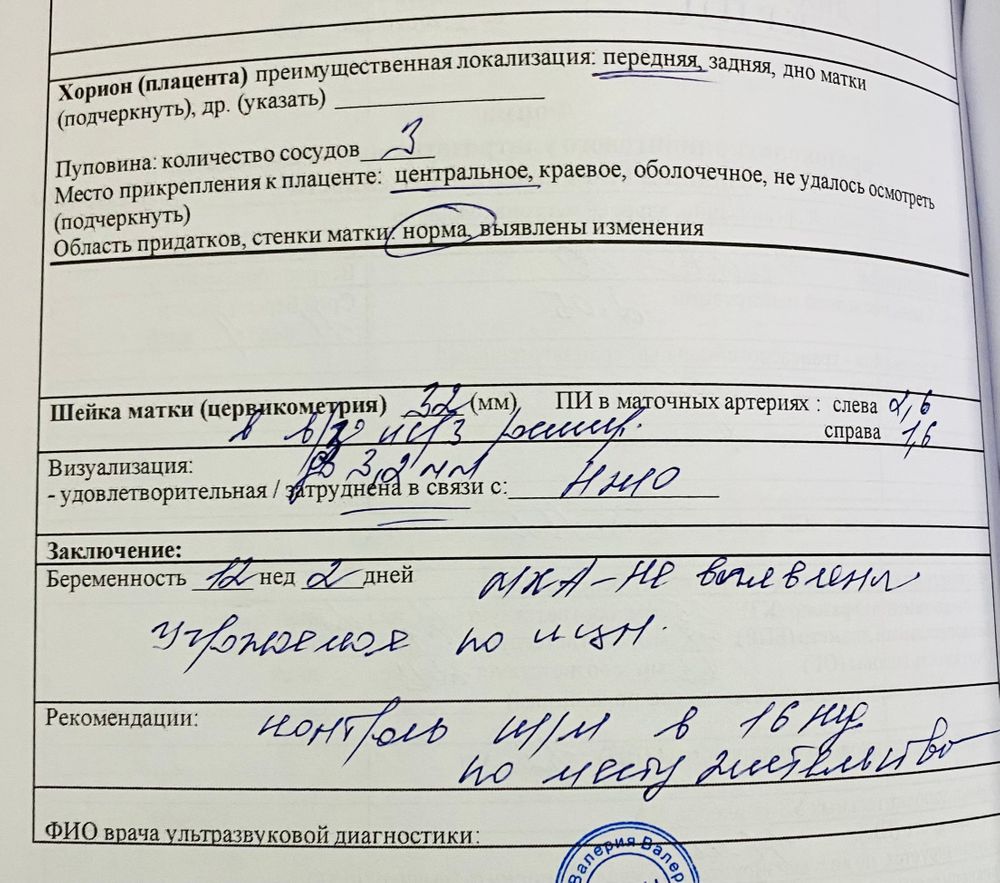 Хорион (плацента) преимущественная локализация: передняя, задняя, дно матки
(подчеркнуть), др. (указать)
Пуповина: количество сосудов 3
Место прикрепления к плаценте: центральное, краевое, оболочечное, не удалось осмотреть
(подчеркнуть)
Область придатков, стенки матки: норма, выявлены изменения
Шейка матки (цервикометрия) 32 (мм) ПИ в маточных артериях : слева 2,6
справа 1,6
в в/3 расшир.
до 3,2 мм
Визуализация:
- удовлетворительная / затруднена в связи с: НЖО
Заключение:
Беременность 12 нед 2 дней МХА - не выявлена
Угрожаемая по ИЦН.
Рекомендации: контроль ш/м в 16 нед.
по месту жительство
ФИО врача ультразвуковой диагностики:
Валерия Валер